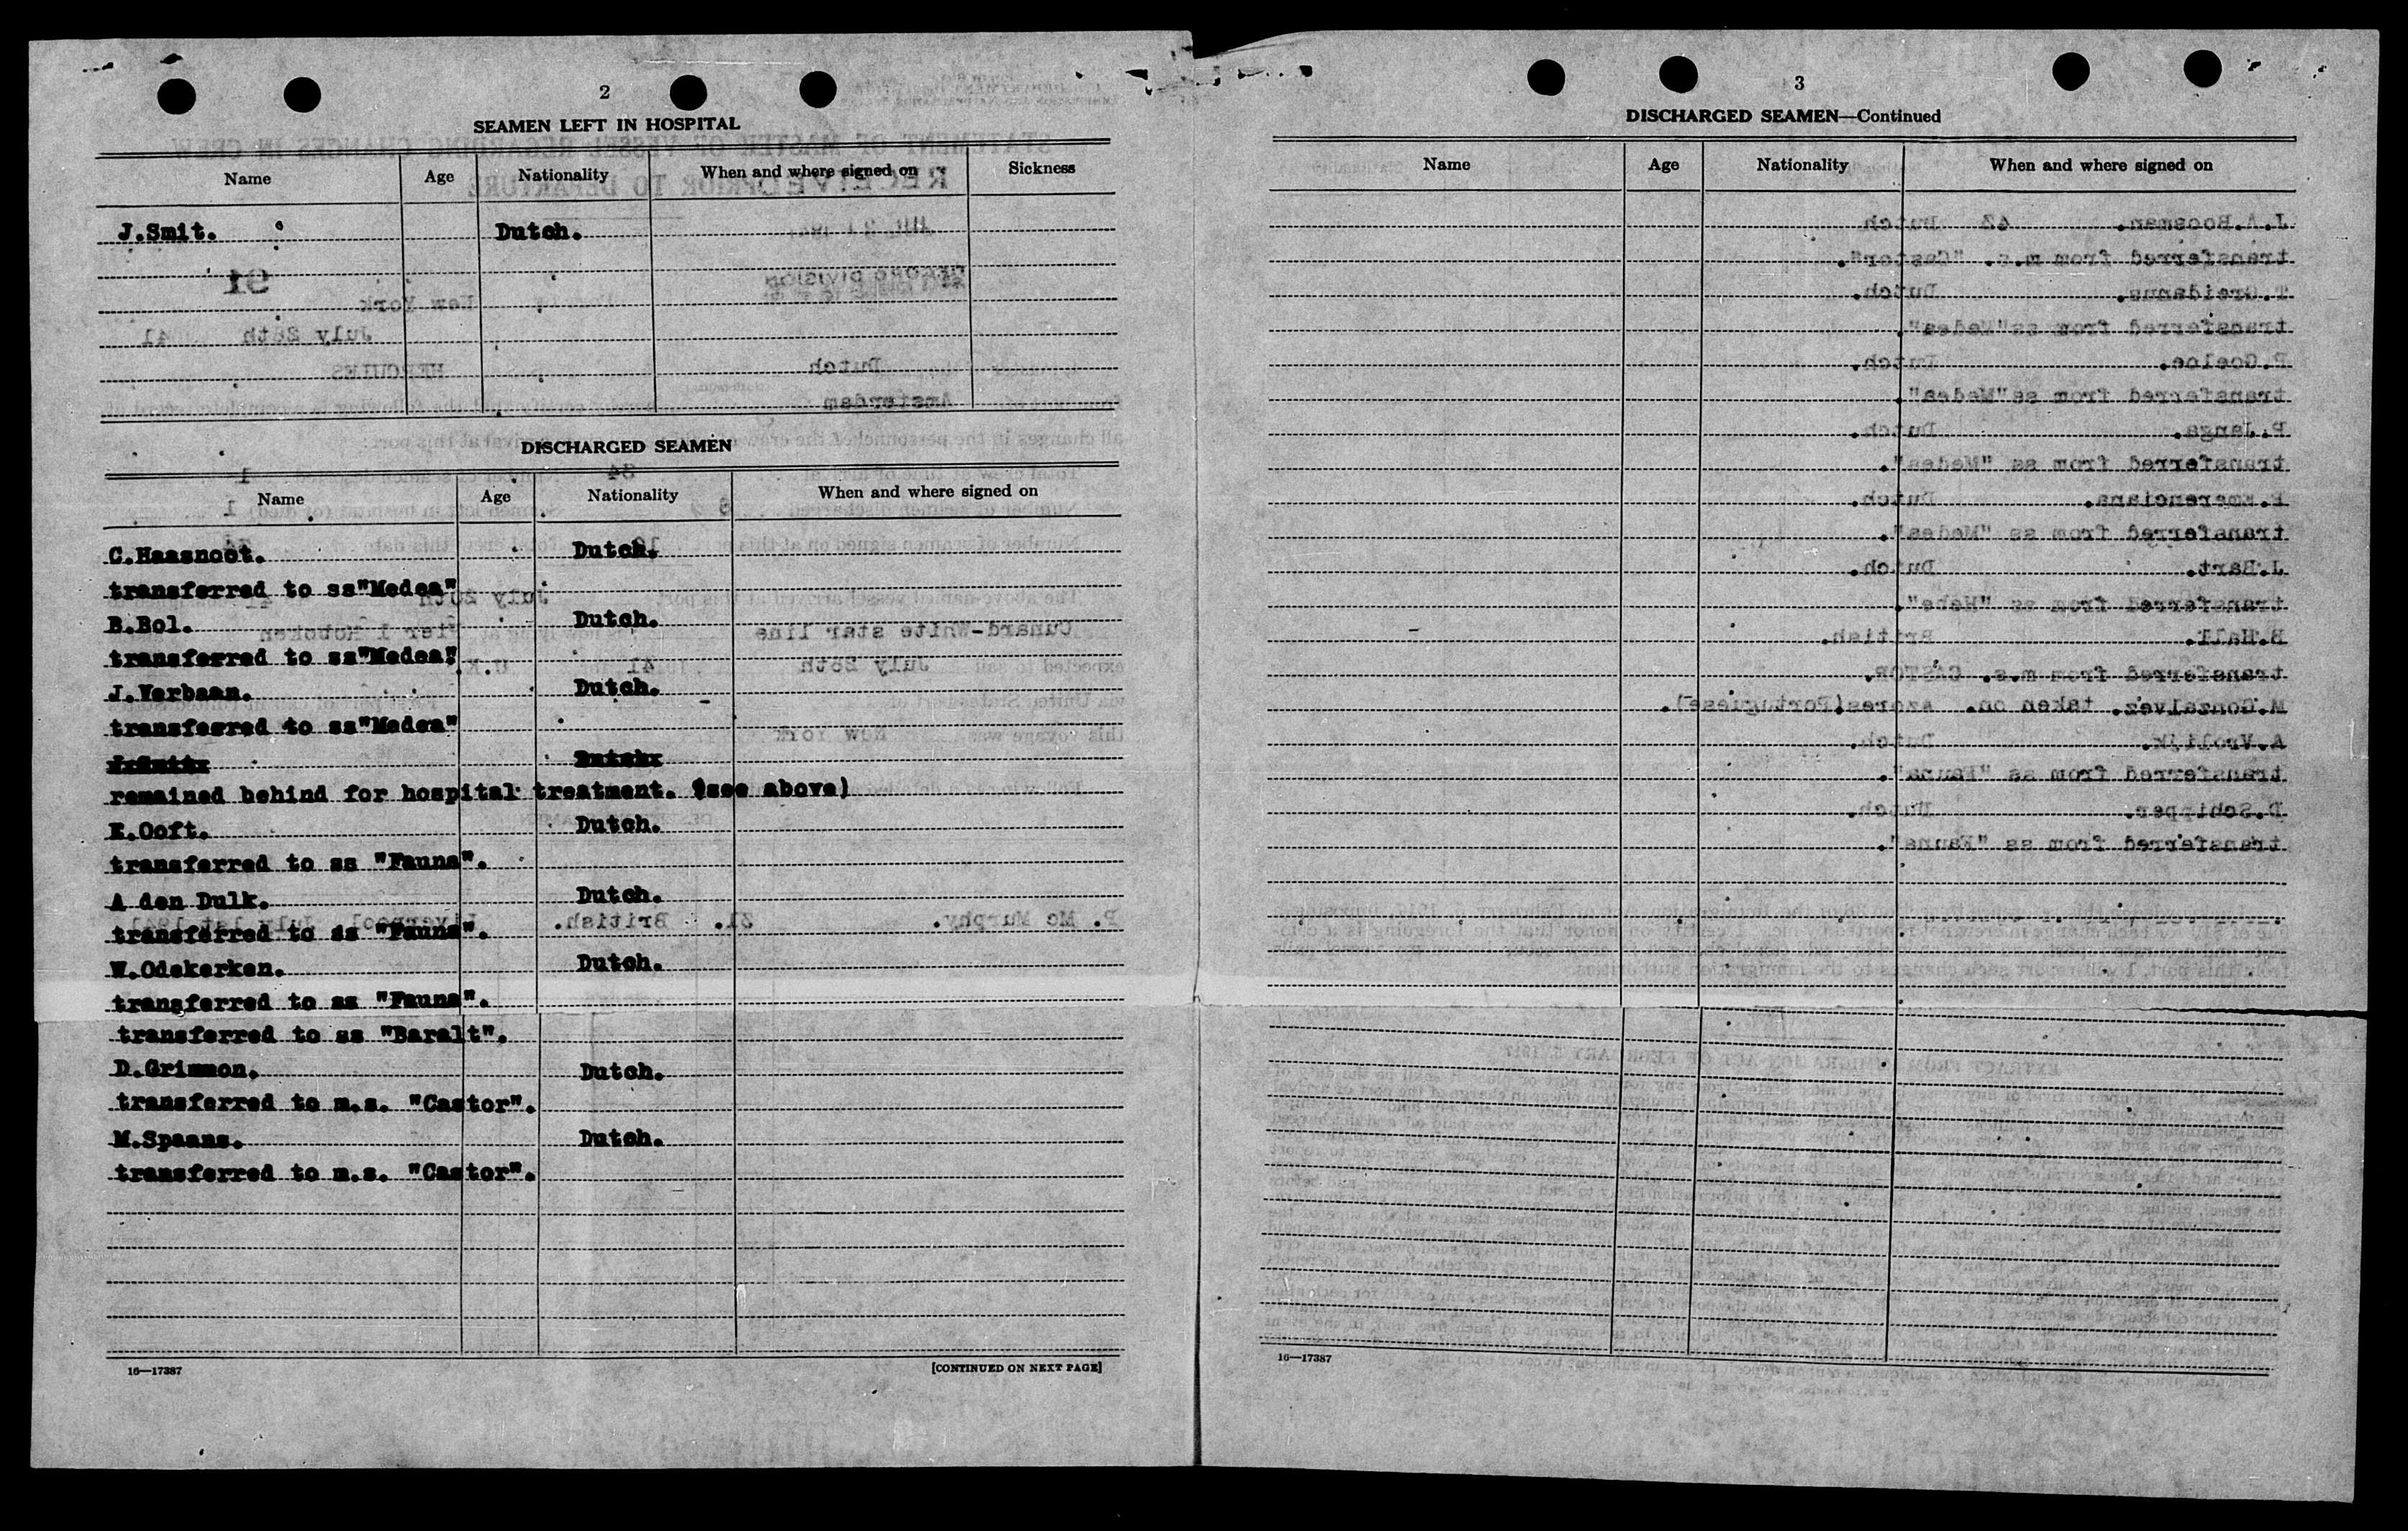 2
SEAMEN LEFT IN HOSPITAL
Name Age Nationality When and where signed on Sickness
J.Smit. Dutch.
DISCHARGED SEAMEN
Name Age Nationality When and where signed on
C.Haasnoot. Dutch.
transferred to ss"Medea"
B.Bol. Dutch.
transferred to ss"Medea"
J.Verbaan. Dutch.
transferred to ss"Medea"
J.Smit. Dutch.
remained behind for hospital treatment. (see above)
E.Ooft. Dutch.
transferred to ss "Fauna".
A den Dulk. Dutch.
transferred to ss "Fauna".
W.Odekerken. Dutch.
transferred to ss "Fauna".
transferred to ss "Baralt".
D.Grimmon. Dutch.
transferred to m.s. "Castor".
M.Spaans. Dutch.
transferred to m.s. "Castor".
16—17387 [CONTINUED ON NEXT PAGE]
3
DISCHARGED SEAMEN—Continued
Name Age Nationality When and where signed on
16—17387